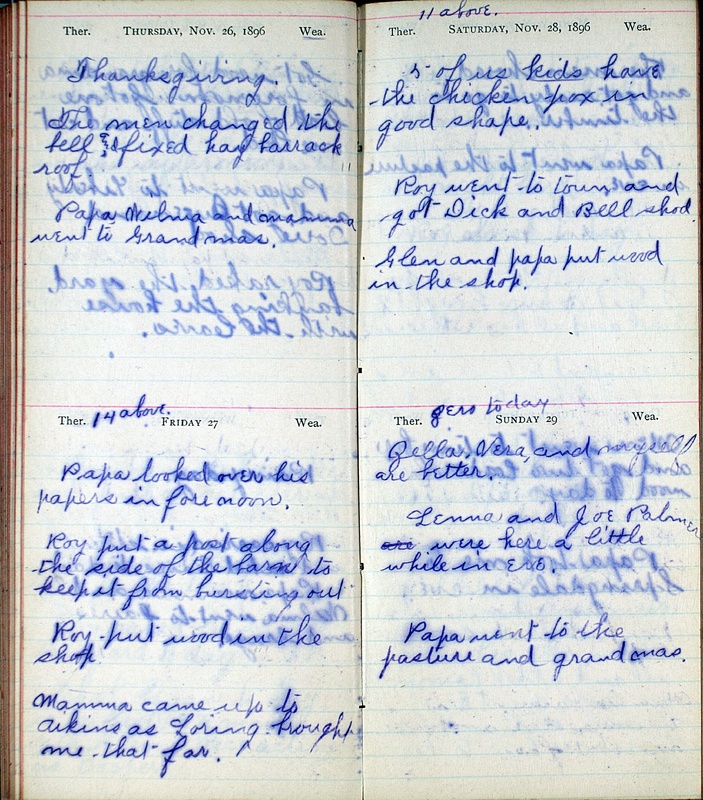 Ther. THURSDAY, NOV. 26, 1896 Wea.
Thanksgiving.
The men changed the
bell & fixed hay barrack
roof.
Papa Wilma and mamma
went to Grandmas.
Ther. 14 above. FRIDAY 27 Wea.
Papa looked over his
papers in forenoon.
Roy put a post along
the side of the barn to
keep it from bursting out
Roy put wood in the
shop
Mamma came up to
Aikins as Loring brought
me that far.
11 above.
Ther. SATURDAY, NOV. 28, 1896 Wea.
5 of us kids have
the chicken pox in
good shape.
Roy went to town and
got Dick and Bell shod.
Glen and papa put wood
in the shop.
zero today
Ther. SUNDAY 29 Wea.
Vera, and myself
are better.
Lenna and Joe Palmer
are were here a little
while in eve.
Papa went to the
pasture and grandmas.